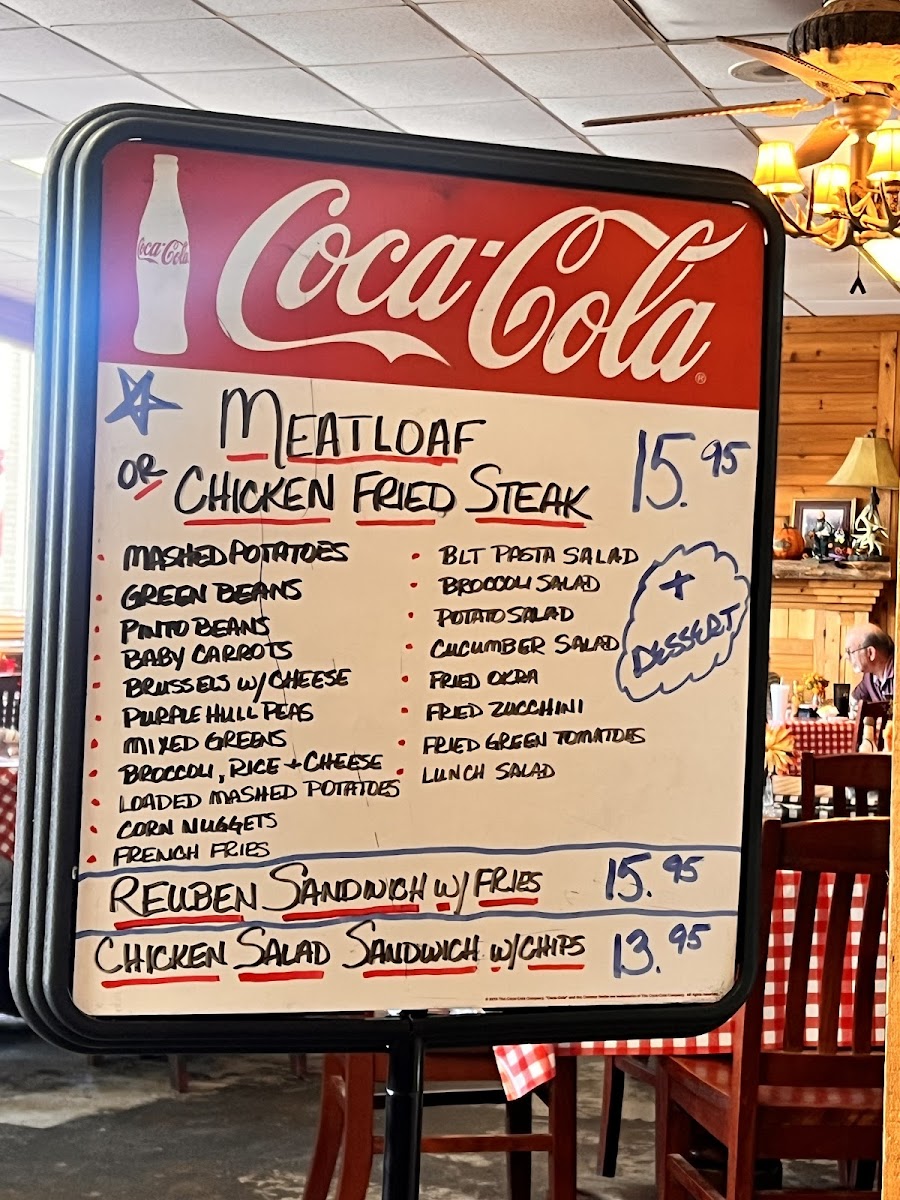 Coca-Cola
Coca-Cola ®
MEATLOAF
OR
CHICKEN FRIED STEAK
15.95
MASHED POTATOES
GREEN BEANS
PINTO BEANS
BABY CARROTS
BRUSSELS W/ CHEESE
PURPLE HULL PEAS
MIXED GREENS
BROCCOLI, RICE + CHEESE
LOADED MASHED POTATOES
CORN NUGGETS
FRENCH FRIES
BLT PASTA SALAD
BROCCOLI SALAD
POTATO SALAD
CUCUMBER SALAD
FRIED OKRA
FRIED ZUCCHINI
FRIED GREEN TOMATOES
LUNCH SALAD
+
DESSERT
REUBEN SANDWICH W/ FRIES 15.95
CHICKEN SALAD SANDWICH W/ CHIPS 13.95